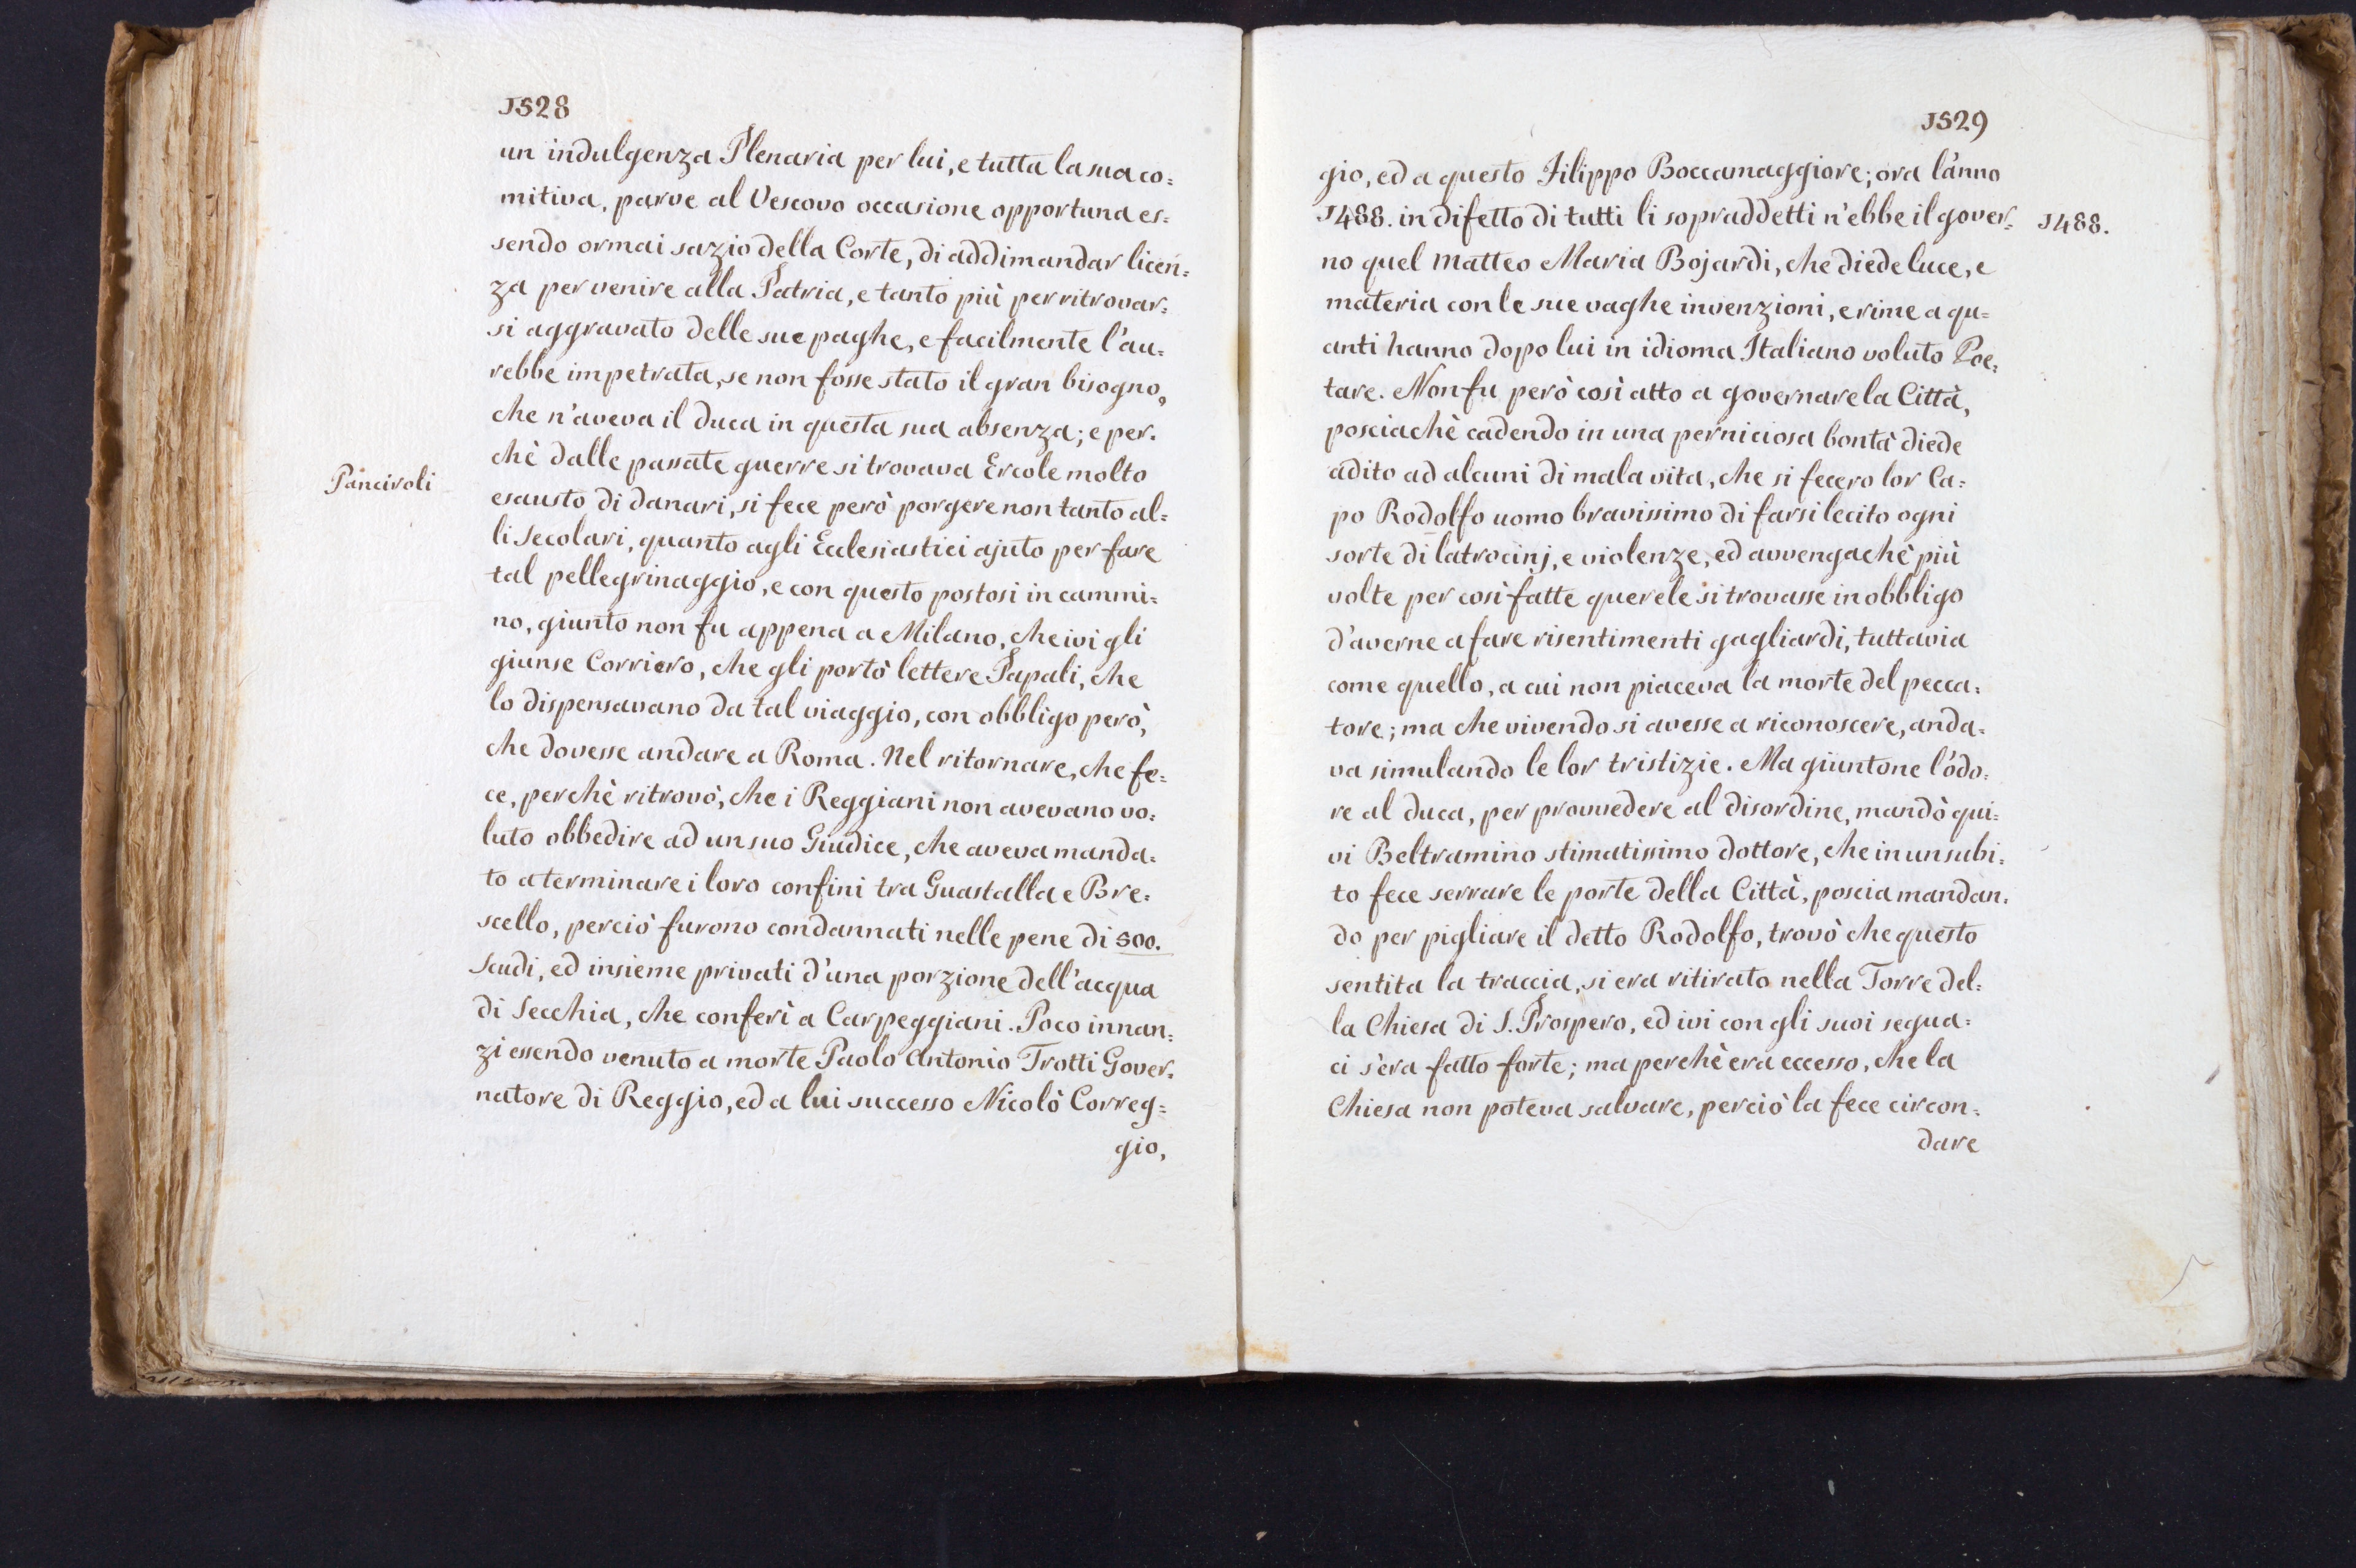 1528
un indulgenza Plenaria per lui, e tutta la sua co=
mitiva, parve al Vescovo occasione opportuna es=
sendo ormai sazio della Corte, di addimandar licen=
za per venire alla Patria, e tanto più per ritrovar=
si aggravato delle sue paghe, e facilmente l'au=
rebbe impetrata, se non fosse stato il gran bisogno,
che n'aveva il duca in questa sua absenza; e per=
chè dalle passate guerre si trovava Ercole molto
Panciroli
esausto di danari, si fece però porgere non tanto al=
li Secolari, quanto agli Ecclesiastici ajuto per fare
tal pellegrinaggio, e con questo postosi in cammi=
no, giunto non fu appena a Milano, che ivi gli
giunse Corriero, che gli portò lettere Papali, che
lo dispensavano da tal viaggio, con obbligo però,
che dovesse andare a Roma. Nel ritornare, che fe=
ce, perchè ritrovò, che i Reggiani non avevano vo=
luto obbedire ad un suo Giudice, che aveva manda=
to a terminare i loro confini tra Guastalla e Bre=
scello, perciò furono condannati nelle pene di 500.
Scudi, ed insieme privati d'una porzione dell'acqua
di Secchia, che conferì a Carpeggiani. Poco innan=
zi essendo venuto a morte Paolo Antonio Trotti Gover=
natore di Reggio, ed a lui successo Nicolò Correg=
gio,
1529
gio, ed a questo Filippo Boccamaggiore; ora l'anno
1488. in difetto di tutti li sopraddetti n'ebbe il gover=
1488.
no quel Matteo Maria Bojardi, che diede luce, e
materia con le sue vaghe invenzioni, e rime a qu=
anti hanno dopo lui in idioma Italiano voluto Poe=
tare. Non fu però così atto a governare la Città,
posciachè cadendo in una perniciosa bontà diede
adito ad alcuni di mala vita, che si fecero lor Ca=
po Rodolfo uomo bravissimo di farsi lecito ogni
sorte di latrocinj, e violenze, ed avvengachè più
volte per così fatte querele si trovasse in obbligo
d'averne a fare risentimenti gagliardi, tuttavia
come quello, a cui non piaceva la morte del pecca=
tore; ma che vivendo si avesse a riconoscere, anda=
va simulando le lor tristizie. Ma giuntone l'odo=
re al duca, per provvedere al disordine, mandò qui=
vi Beltramino stimatissimo dottore, che in un subi=
to fece serrare le porte della Città, poscia mandan=
do per pigliare il detto Rodolfo, trovò che questo
sentita la traccia, si era ritirato nella Torre del=
la Chiesa di S. Prospero, ed ivi con gli suoi segua=
ci s'era fatto forte; ma perchè era eccesso, che la
Chiesa non poteva salvare, perciò la fece circon=
dare